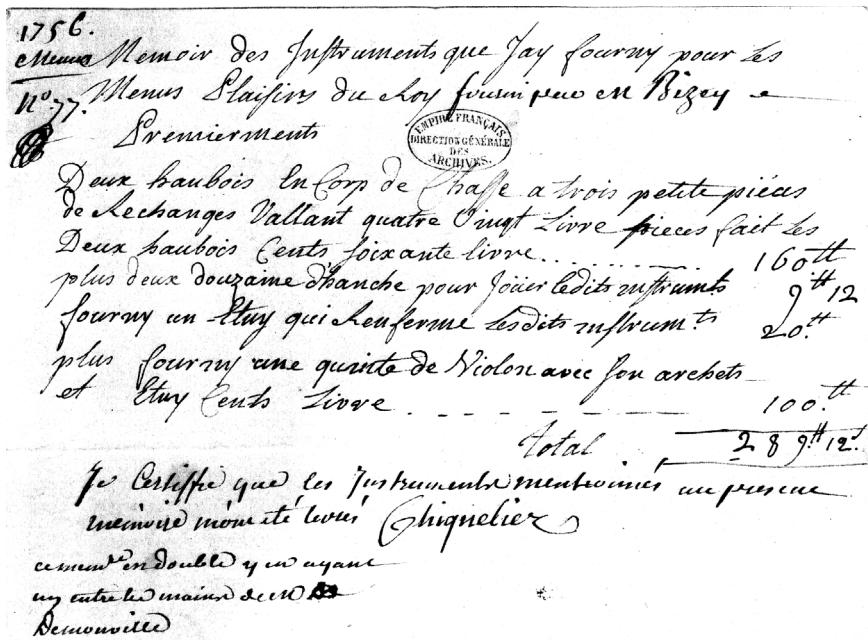 1756.
Menus Memoir des Instruments que Jay fourny pour Les
N° 77. Menus Plaisirs du Roy fourni par M Bizey
Premierments
EMPIRE FRANÇAIS
DIRECTION GÉNÉRALE
DES
ARCHIVES.
Deux haubois En Corp de Chasse a trois petite piéces
de Rechanges Vallant quatre Vingt Livre pieces fait Les
Deux haubois Cents soixante livre.......... 160tt
plus deux douzaine d'hanche pour Joüer Ledits instrumts 9tt 12
fourny un Etuy qui Renferme Lesdits instrumts 20tt
plus fourny une quinte de Violon avec son archets
et Etuy Cents Livre - - - - - - 100tt
Total 289tt 12s
Je Certiffie que les Instruments mentionnés au present
mémoire m'ont été livrés Chiquelier
ce mémre en double y en ayant
un entre les mains de M
Demonville